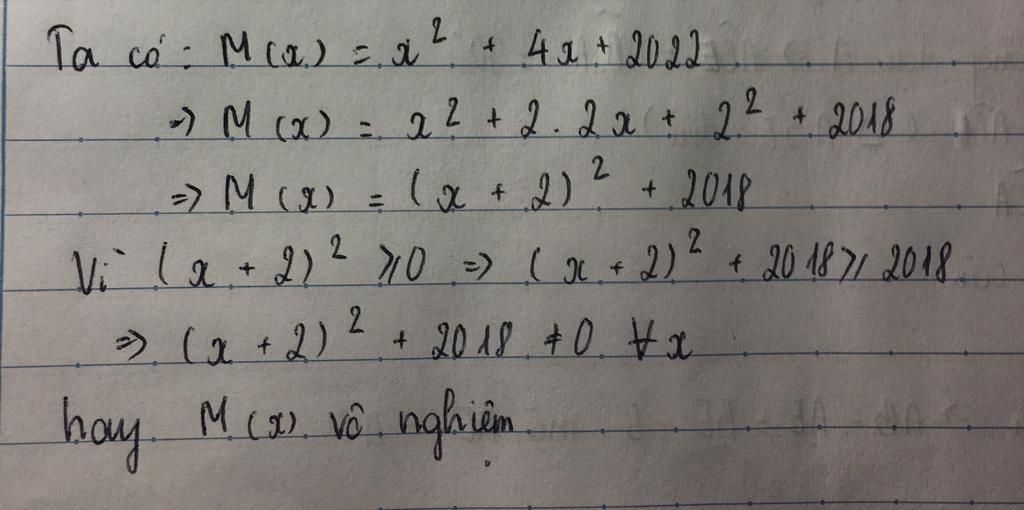 Ta có: M(x) = x² + 4x + 2022
=> M(x) = x² + 2. 2x + 2² + 2018
=> M(x) = (x + 2)² + 2018
Vì (x + 2)² ≥ 0 => (x + 2)² + 2018 ≥ 2018
=> (x + 2)² + 2018 ≠ 0 ∀x
hay M(x) vô nghiệm